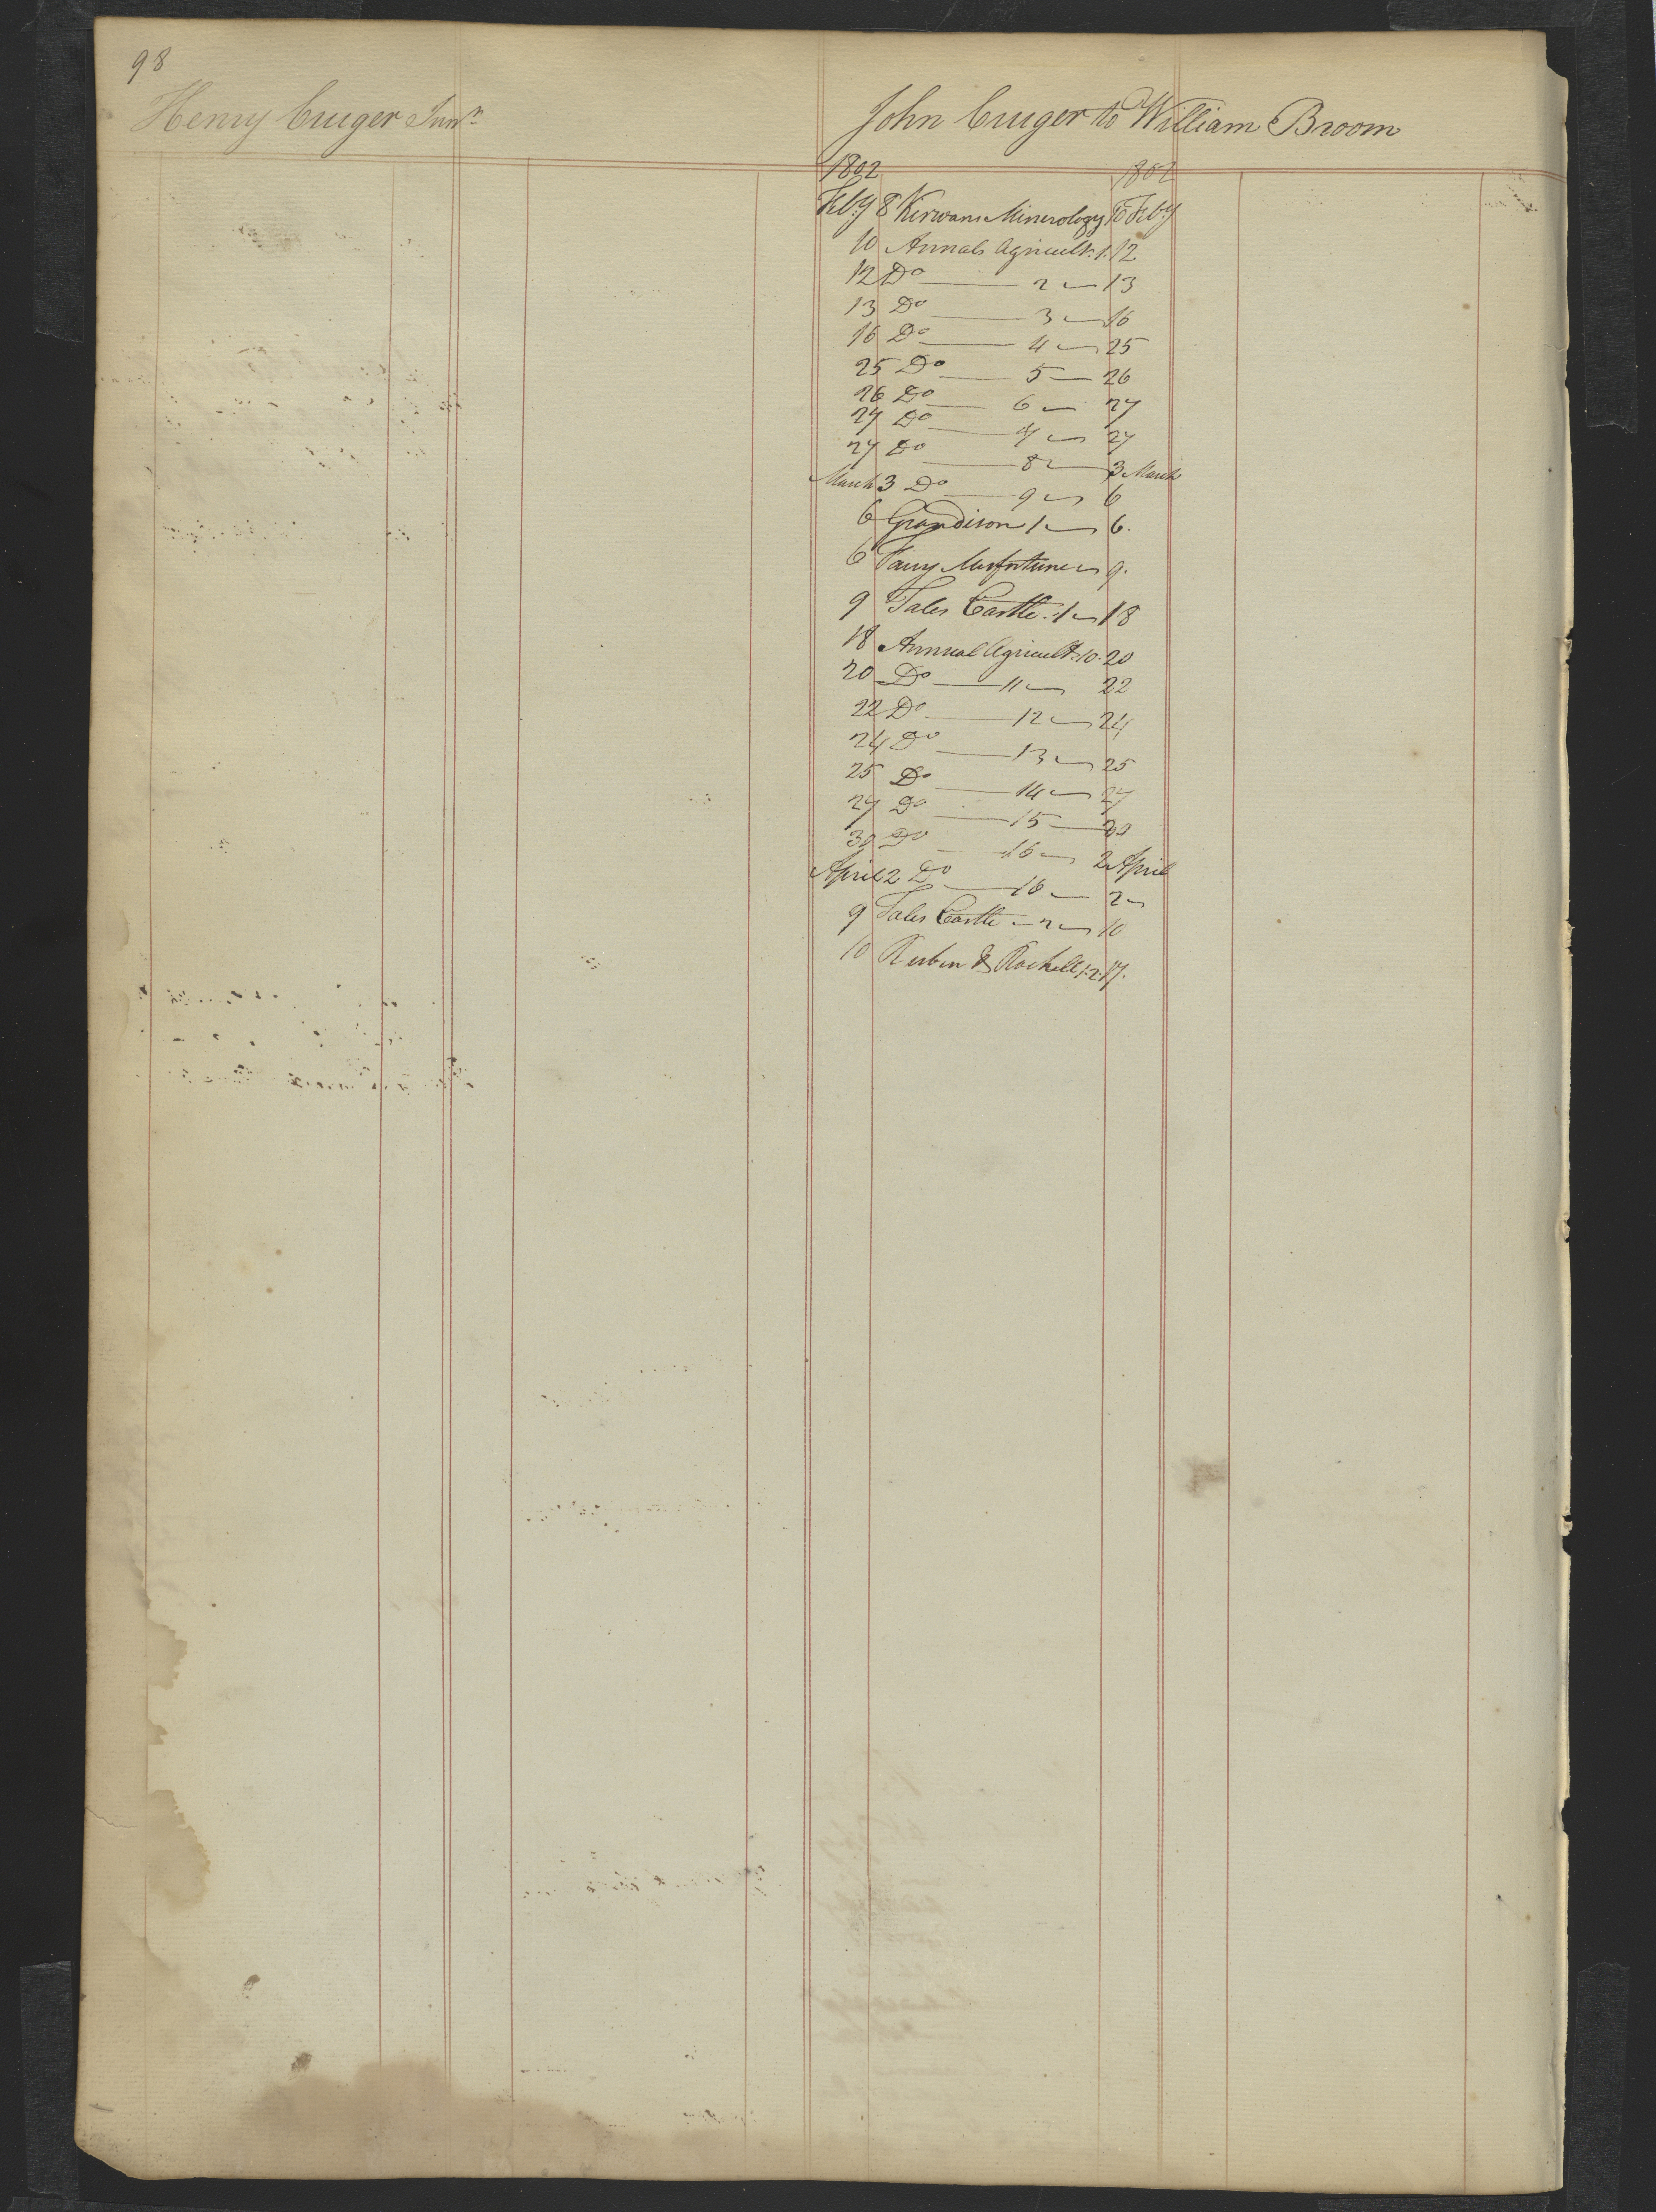 98
Henry Cruger Junr
John Cruger to William Broom
1802 1802
Feby 8 Kirwans Minerology 10 Feby
10 Annals Agricult. 1. 12
12 Do — 2 — 13
13 Do — 3 — 16
16 Do — 4 — 25
25 Do — 5 — 26
26 Do — 6 — 27
27 Do — 7 — 27
27 Do — 8 — 3 March
March 3 Do — 9 — 6
6 Grandison 1 — 6.
6 Misfortune — 9.
9 Tales Castle. 1 — 18
18 Annual Agricult. 10. 20
20 Do — 11 — 22
22 Do — 12 — 24
24 Do — 13 — 25
25 Do — 14 — 27
27 Do — 15 — 30
30 Do — 16 — 2 April
April 2 Do — 16 — 2 —
9 Tales Castle — 2 — 10
10 Reubin & Rachell 1.2. 17.